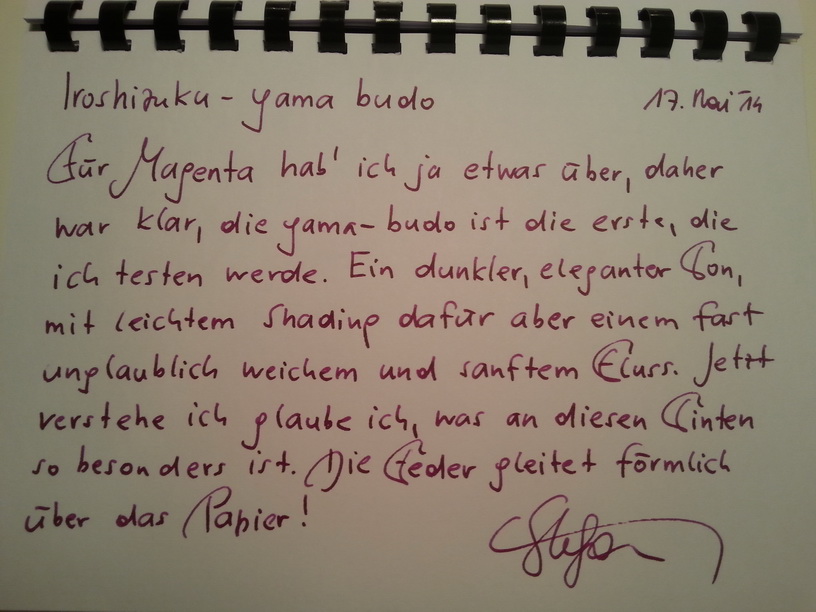 Iroshizuku - yama budo 17. Mai '14
Für Magenta hab' ich ja etwas über, daher
war klar, die yama-budo ist die erste, die
ich testen werde. Ein dunkler, eleganter Ton,
mit leichtem Shading dafür aber einem fast
unglaublich weichem und sanftem Fluss. Jetzt
verstehe ich glaube ich, was an diesen Tinten
so besonders ist. Die Feder gleitet förmlich
über das Papier!
Stefan